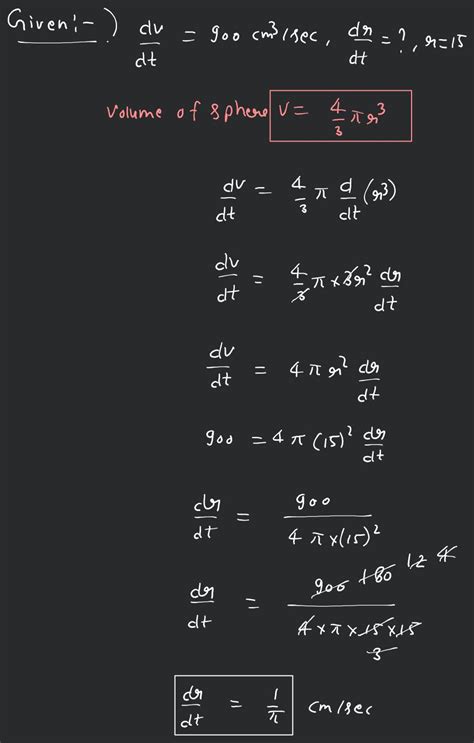 Given:-) dv/dt = 900 cm³/sec, dr/dt = ?, r=15
Volume of sphere V = 4/3 πr³
dv/dt = 4/3 π d/dt (r³)
dv/dt = 4/3 π × 3r² dr/dt
dv/dt = 4πr² dr/dt
900 = 4π(15)² dr/dt
dr/dt = 900 / 4π×(15)²
dr/dt = 900 180 12 4 / 4×π×15×15 3
dr/dt = 1/π cm/sec